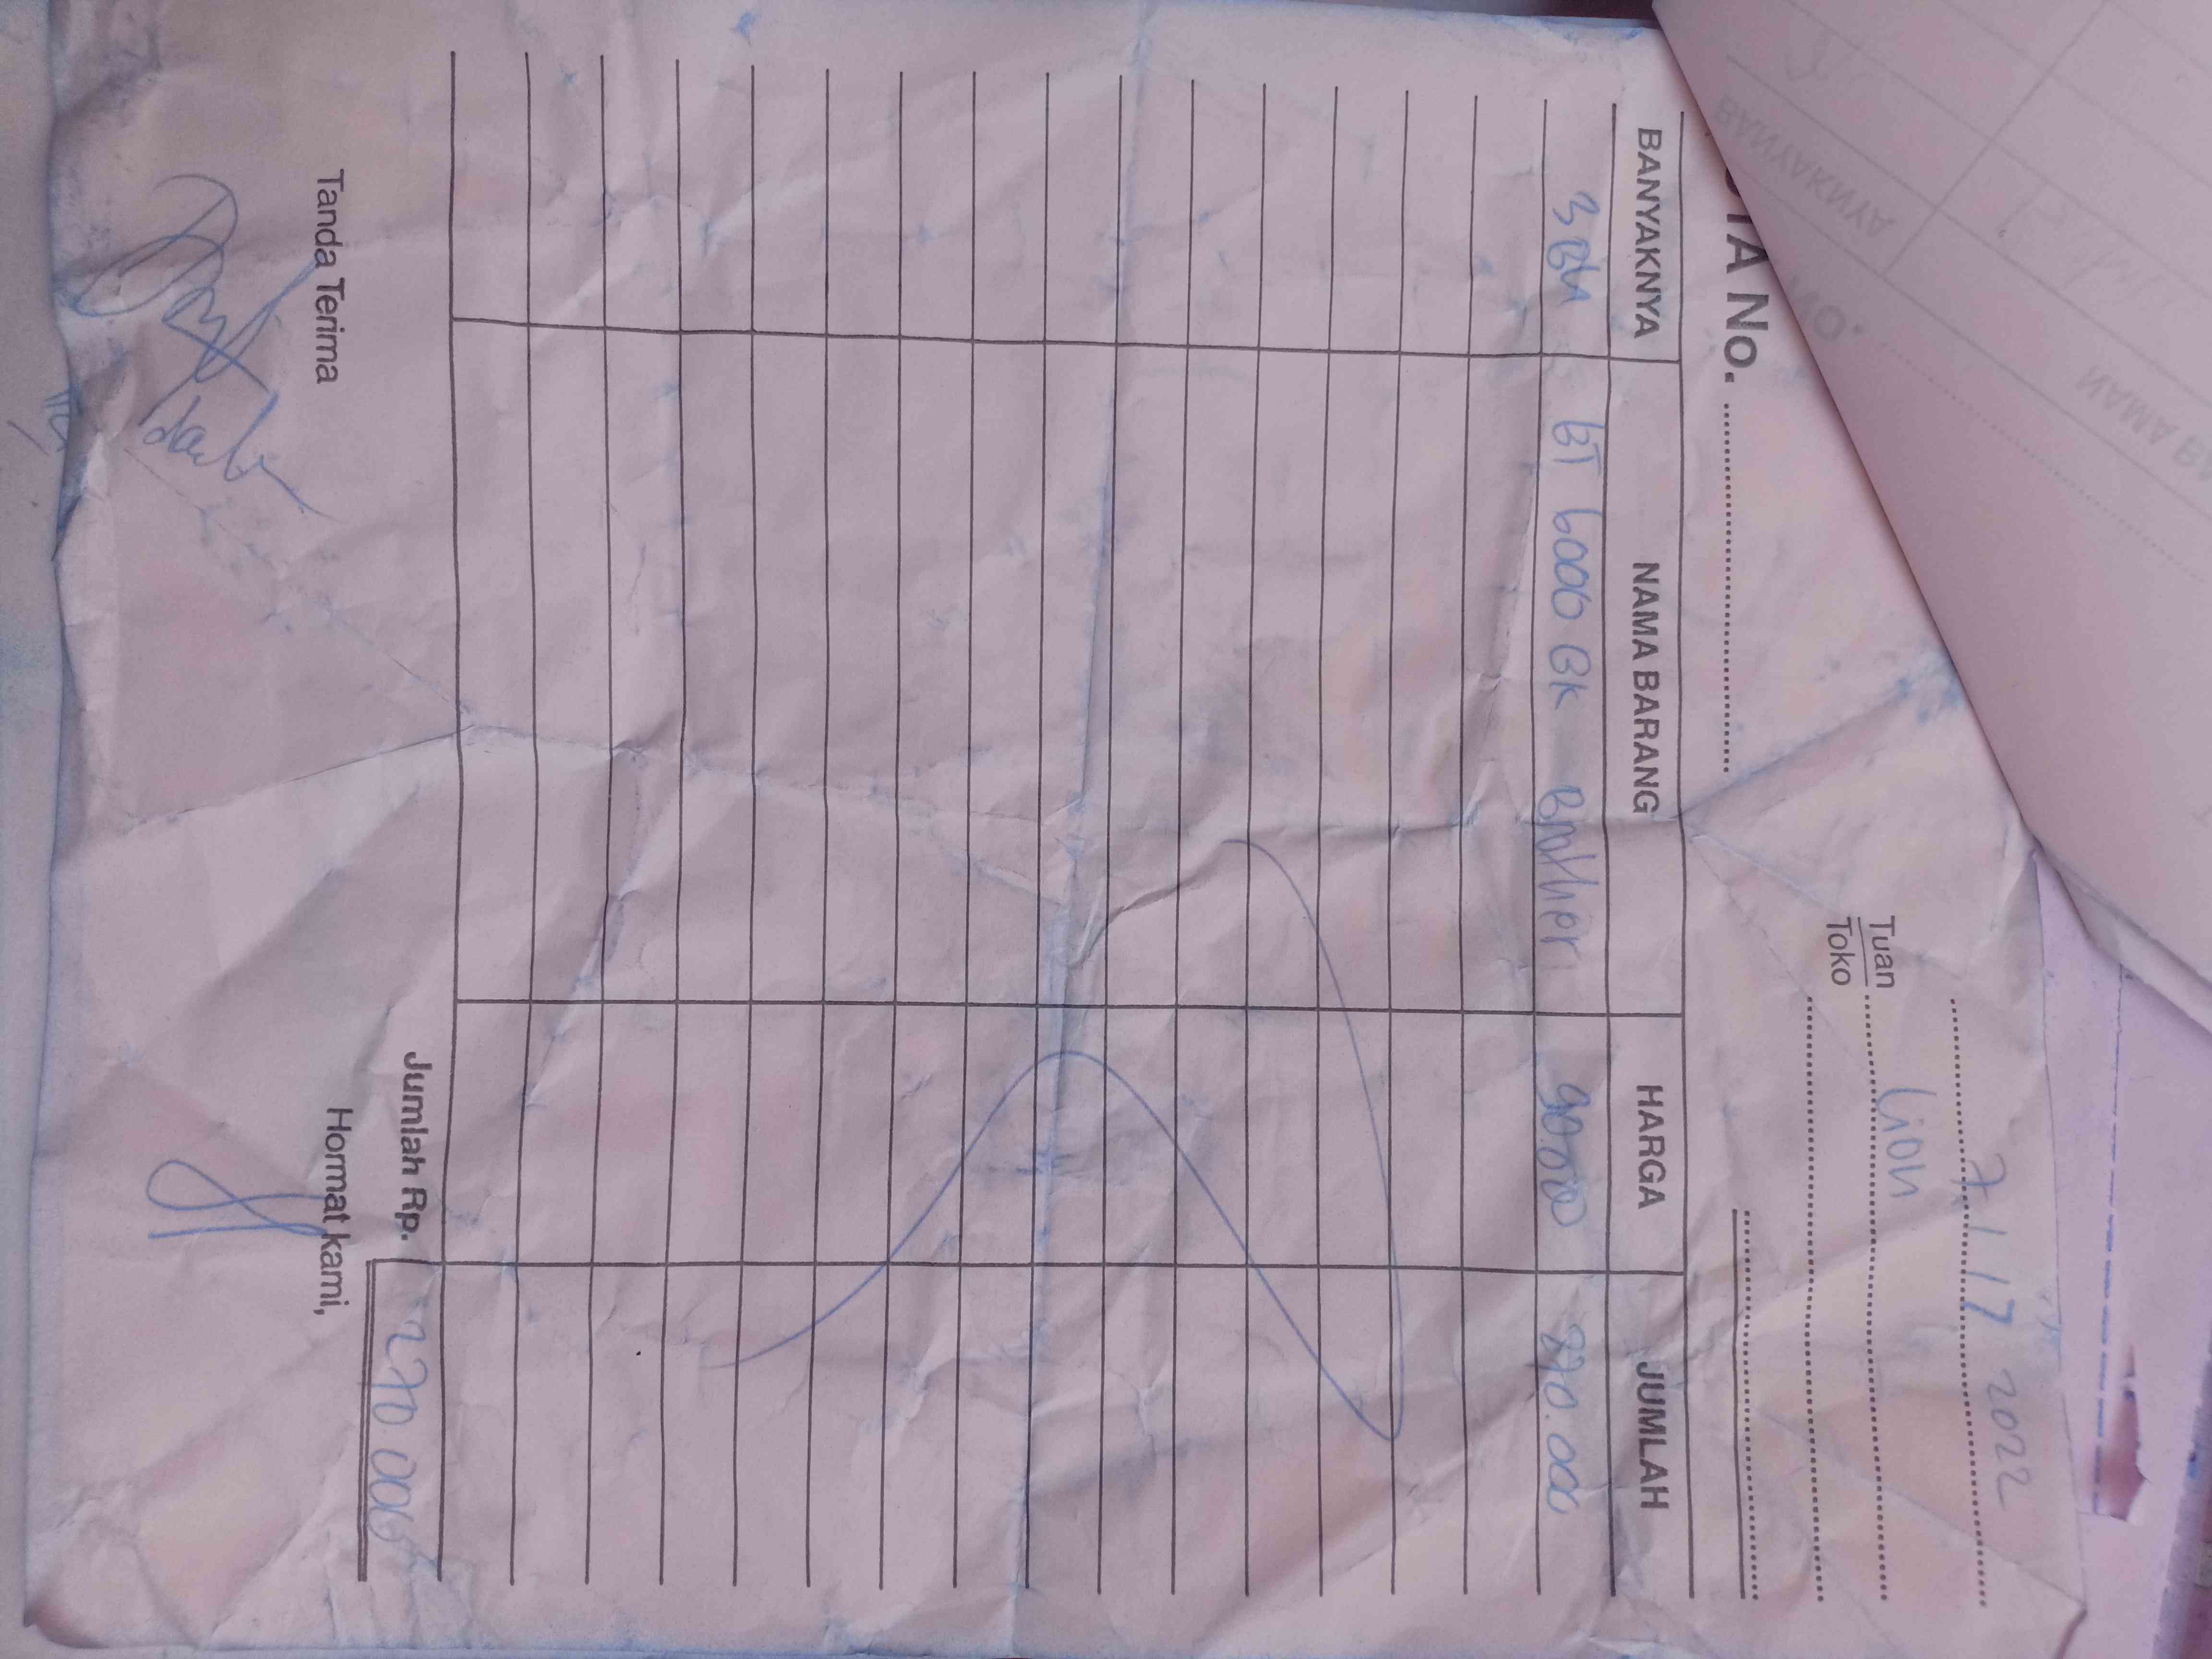 7/12 2022
Tuan Lion
Toko
TA No.
BANYAKNYA NAMA BARANG HARGA JUMLAH
3 Bh BT 6000 BK Brother 90.000 270.000
Jumlah Rp. 270.000
Tanda Terima Hormat kami,
NO.
BANYAKNYA NAMA BA